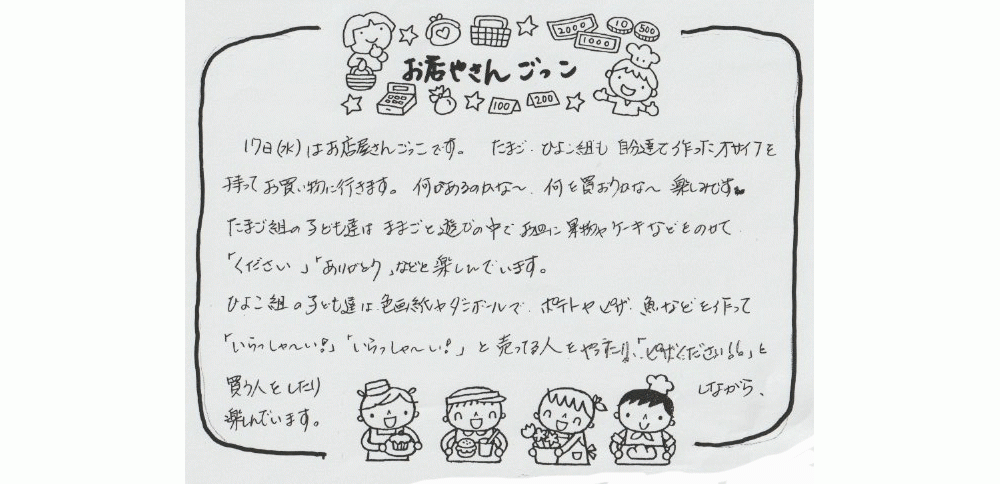 2000
1000
10
500
お店やさんごっこ
100
200
17日(水)はお店屋さんごっこです。 たまご・ひよこ組も 自分達で作ったオサイフを
持ってお買い物に行きます。何があるのかな〜、何を買おうかな〜 楽しみです。
たまご組の子ども達は ままごと遊びの中でお皿に果物やケーキなどをのせて
「ください」「ありがとう」などと楽しんでいます。
ひよこ組の子ども達は色画紙やダンボールで、ポテトやピザ、魚などを作って
「いらっしゃーい!」「いらっしゃーい!」と売ってる人をやったり、「ピザください!!」と
買う人をしたり しながら、
楽しんでいます。